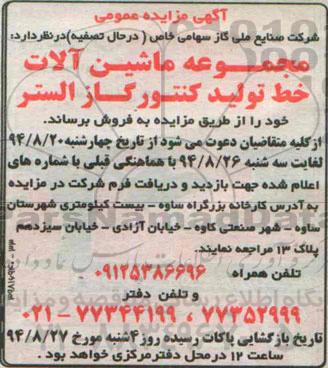 آگهی مزایده عمومی
شرکت صنایع ملی گاز سهامی خاص ( درحال تصفیه) درنظردارد:
مجموعه ماشین آلات
خط تولید کنتور گاز الستر
خود را از طریق مزایده به فروش برساند.
از کلیه متقاضیان دعوت می شود از تاریخ چهارشنبه ۹۴/۸/۲۰
لغایت سه شنبه ۹۴/۸/۲۶ با هماهنگی قبلی با شماره های
اعلام شده جهت بازدید و دریافت فرم شرکت در مزایده
به آدرس کارخانه بزرگراه ساوه - بیست کیلومتری شهرستان
ساوه - شهر صنعتی کاوه - خیابان آزادی - خیابان سیزدهم
پلاک ۱۳ مراجعه نمایند.
تلفن همراه ۰۹۱۲۵۳۸۶۶۹۶
و تلفن دفتر
۷۷۳۵۲۹۹۹ ، ۷۷۳۴۴۱۹۹ - ۰۲۱
تاریخ بازگشایی پاکات رسیده روز ۴شنبه مورخ ۹۴/۸/۲۷
ساعت ۱۲ در محل دفتر مرکزی خواهد بود .